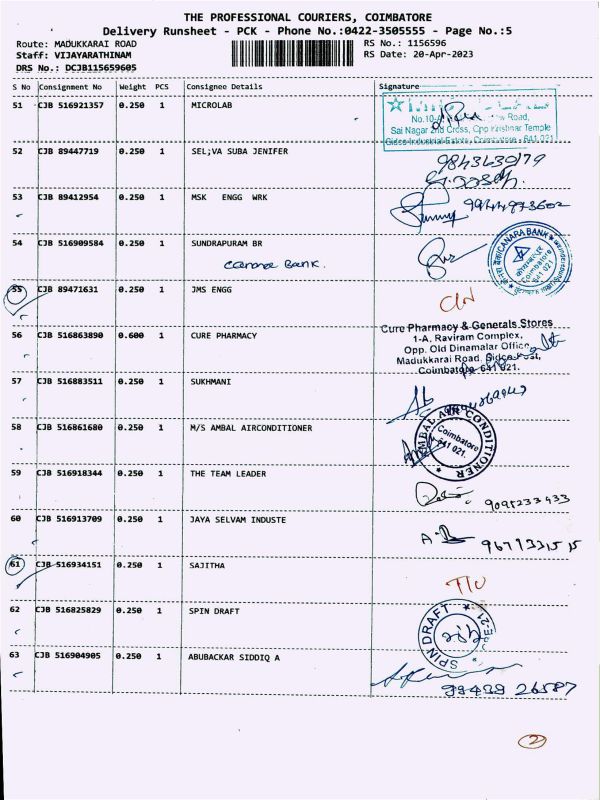 THE PROFESSIONAL COURIERS, COIMBATORE
Delivery Runsheet - PCK - Phone No.:0422-3505555 - Page No.:5
Route: MADUKKARAI ROAD
RS No.: 1156596
Staff: VIJAYARATHINAM
RS Date: 20-Apr-2023
DRS No.: DCJB115659605
S No Consignment No Weight PCS Consignee Details Signature
51 CJB 516921357 0.250 1 MICROLAB
Road,
Sai Nagar 2nd Cross, Opp Krishnar Temple
Sidco Industrial Estate, Coimbatore - 641 021.
52 CJB 89447719 0.250 1 SEL;VA SUBA JENIFER
53 CJB 89412954 0.250 1 MSK ENGG WRK
54 CJB 516909584 0.250 1 SUNDRAPURAM BR
Canara Bank.
CANARA BANK
Coimbatore
641 021
55 CJB 89471631 0.250 1 JMS ENGG
56 CJB 516863890 0.600 1 CURE PHARMACY
Cure Pharmacy & Generals Stores
1-A, Raviram Complex,
Opp. Old Dinamalar Office,
Madukkarai Road, Sidco Post,
Coimbatore-641 021.
57 CJB 516883511 0.250 1 SUKHMANI
58 CJB 516861680 0.250 1 M/S AMBAL AIRCONDITIONER
AMBAL AIR CONDITIONER
Coimbatore
641 021.
59 CJB 516918344 0.250 1 THE TEAM LEADER
60 CJB 516913709 0.250 1 JAYA SELVAM INDUSTE
61 CJB 516934151 0.250 1 SAJITHA
62 CJB 516825829 0.250 1 SPIN DRAFT
SPIN DRAFT
63 CJB 516904905 0.250 1 ABUBACKAR SIDDIQ A
99439 26587
2